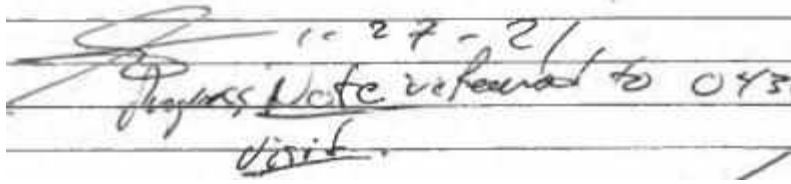 1-27-21
Progress Note referred to 043
visit.